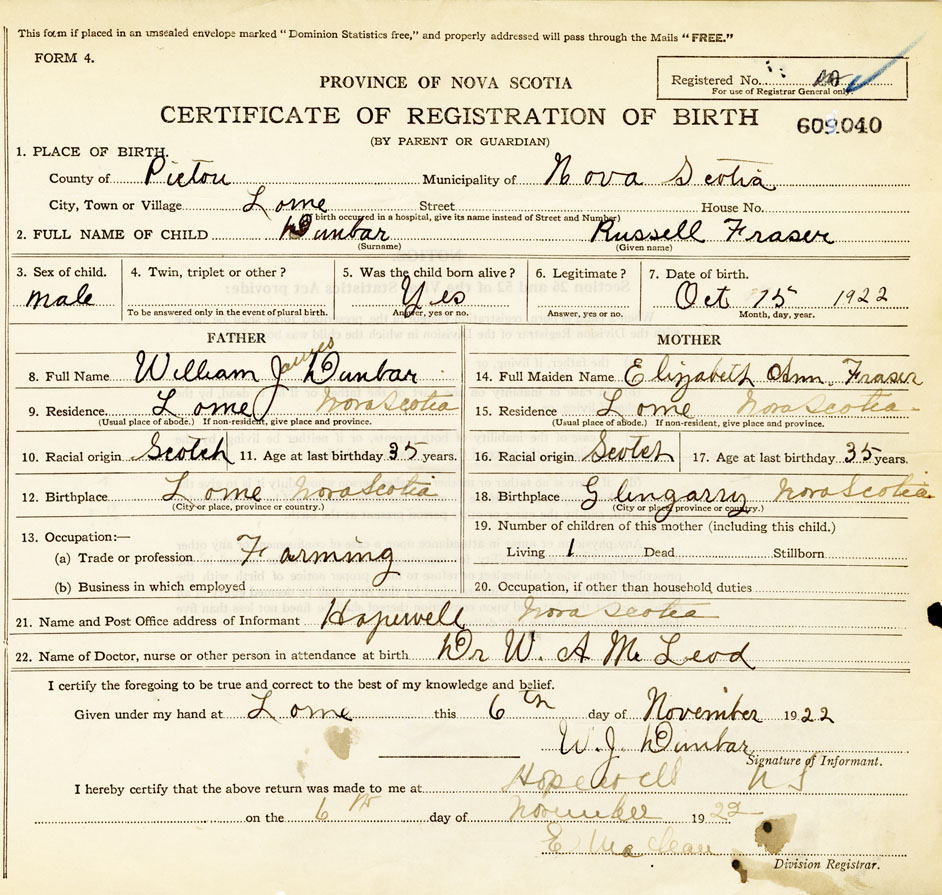 This form if placed in an unsealed envelope marked "Dominion Statistics free," and properly addressed will pass through the Mails "FREE."
FORM 4.
PROVINCE OF NOVA SCOTIA
Registered No.
For use of Registrar General only.
CERTIFICATE OF REGISTRATION OF BIRTH
609040
(BY PARENT OR GUARDIAN)
1. PLACE OF BIRTH.
County of Pictou Municipality of Nova Scotia
City, Town or Village Lorne Street House No.
If birth occurred in a hospital, give its name instead of Street and Number)
2. FULL NAME OF CHILD Dunbar Russell Fraser
(Surname) (Given name)
3. Sex of child. 4. Twin, triplet or other? 5. Was the child born alive? 6. Legitimate? 7. Date of birth.
male Yes Oct 15 1922
To be answered only in the event of plural birth. Answer, yes or no. Answer, yes or no. Month, day, year.
FATHER MOTHER
8. Full Name William James Dunbar 14. Full Maiden Name Elizabeth Ann Fraser
9. Residence Lorne Nova Scotia 15. Residence Lorne Nova Scotia
(Usual place of abode.) If non-resident, give place and province. (Usual place of abode.) If non-resident, give place and province.
10. Racial origin Scotch 11. Age at last birthday 35 years. 16. Racial origin Scotch 17. Age at last birthday 35 years.
12. Birthplace Lorne Nova Scotia 18. Birthplace Glengarry Nova Scotia
(City or place, province or country.) (City or place, province or country.)
13. Occupation:— 19. Number of children of this mother (including this child.)
(a) Trade or profession Farming Living 1 Dead Stillborn
(b) Business in which employed 20. Occupation, if other than household duties
21. Name and Post Office address of Informant Hopewell Nova Scotia
22. Name of Doctor, nurse or other person in attendance at birth Dr W. A McLeod
I certify the foregoing to be true and correct to the best of my knowledge and belief.
Given under my hand at Lorne this 6th day of November 1922
W. J. Dunbar
Signature of Informant.
I hereby certify that the above return was made to me at Hopewell N S
on the 6th day of November 1922
E MacLean
Division Registrar.